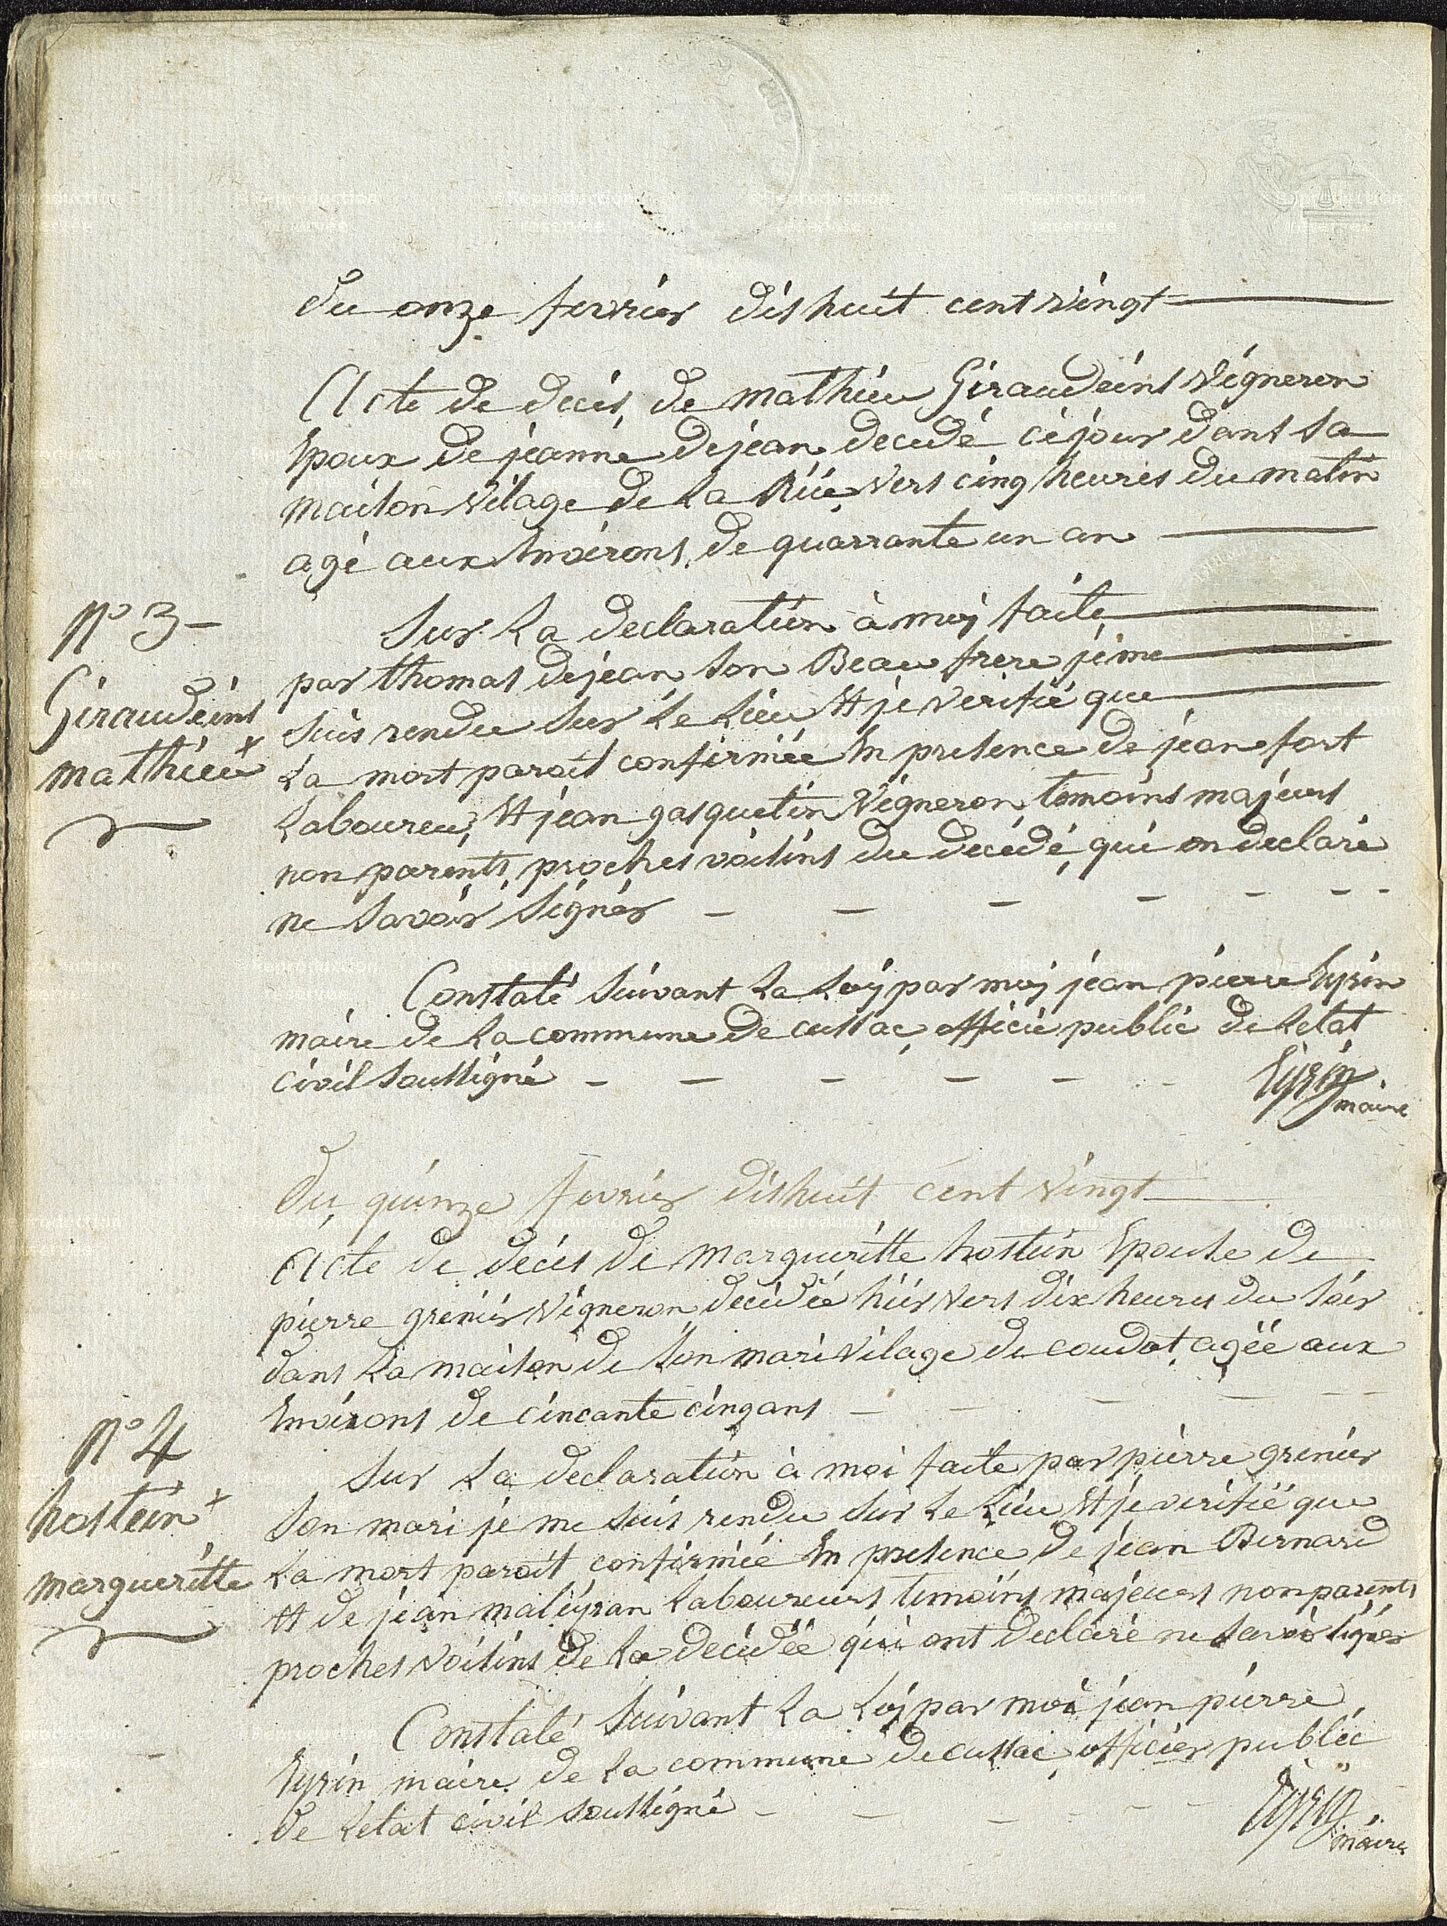 du onze fevrier dishuit cent vingt
Acte de décés de mathieu Giraudeins vigneron
Epoux de jeanne dejean decedé cejour dans sa
maison vilage de La Rüe vers cinq heures du matin
agé aux Environs de quarrante un an
N° 3
Giraudeins
mathieu
Sur La declaration à moy faite
par thomas dejean son Beau frere je me
suis rendu sur Le Lieu Et je verifié que
La mort paroit confirmée En presence de jean fort
Laboureur Et jean gasquetin vigneron temoins majeurs
non parents proches voisins du decédé qui on declaré
ne savoir signer
Constaté suivant La Loy par moy jean pierre Eyrin
maire de La commune de cussac officié public de Letat
civil soussigné
Eyrin
maire
du quinze fevrier dishuit cent vingt
Acte de décés de margueritte hostein Epouse de
pierre grenier vigneron decedée hier vers dix heures du soir
dans La maison de son mari vilage de coudot agée aux
Environs de cincante cinq ans
N° 4
hostein
margueritte
Sur La declaration à moi faite par pierre grenier
son mari je me suis rendu sur Le Lieu Et je verifié que
La mort paroit confirmée En presence de jean Bernard
Et de jean maleyran Laboureurs temoins majeurs non parents
proches voisins de La decedée qui ont declaré ne savoir signer
Constaté suivant La Loy par moi jean pierre
Eyrin maire de La commune de cussac officier public
de Letat civil soussigné
Eyrin
maire